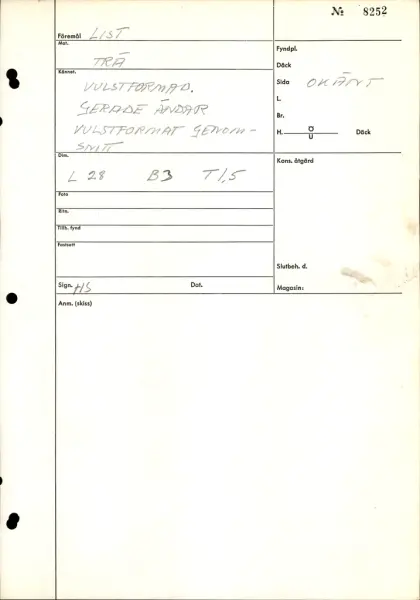 № 8252
Föremål LIST
Mat.
TRÄ
Fyndpl.
Däck
Kännet.
VULSTFORMAD.
Sida OKÄNT
GERADE ÄNDAR
L.
VULSTFORMAT GENOM-
Br.
SNITT
H. Ö
U Däck
Dim.
L 28 B3 T1,5
Kons. åtgärd
Foto
Ritn.
Tillh. fynd
Fastsatt
Slutbeh. d.
Sign. HS Dat.
Magasin:
Anm. (skiss)